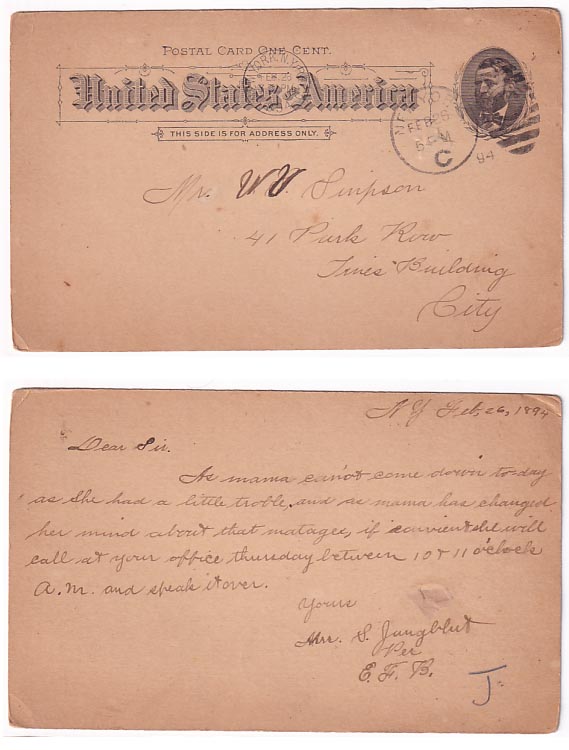 POSTAL CARD ONE CENT.
United States of America
THIS SIDE IS FOR ADDRESS ONLY.
YORK, N.Y.
FEB 26
NEW YO
FEB 26
5 PM
C
94
Mr. W. Simpson
41 Park Row
Times Building
City
NY Feb, 26, 1894
Dear Sir.
As mama can'ot come down to-day
as she had a little troble, and as mama has changed
her mind about that matages, if convient she will
call at your office thursday between 10 & 11 o'clock
A.M. and speak it over.
Yours
Mrs. S. Jungblut
Per
E. F. B.
J